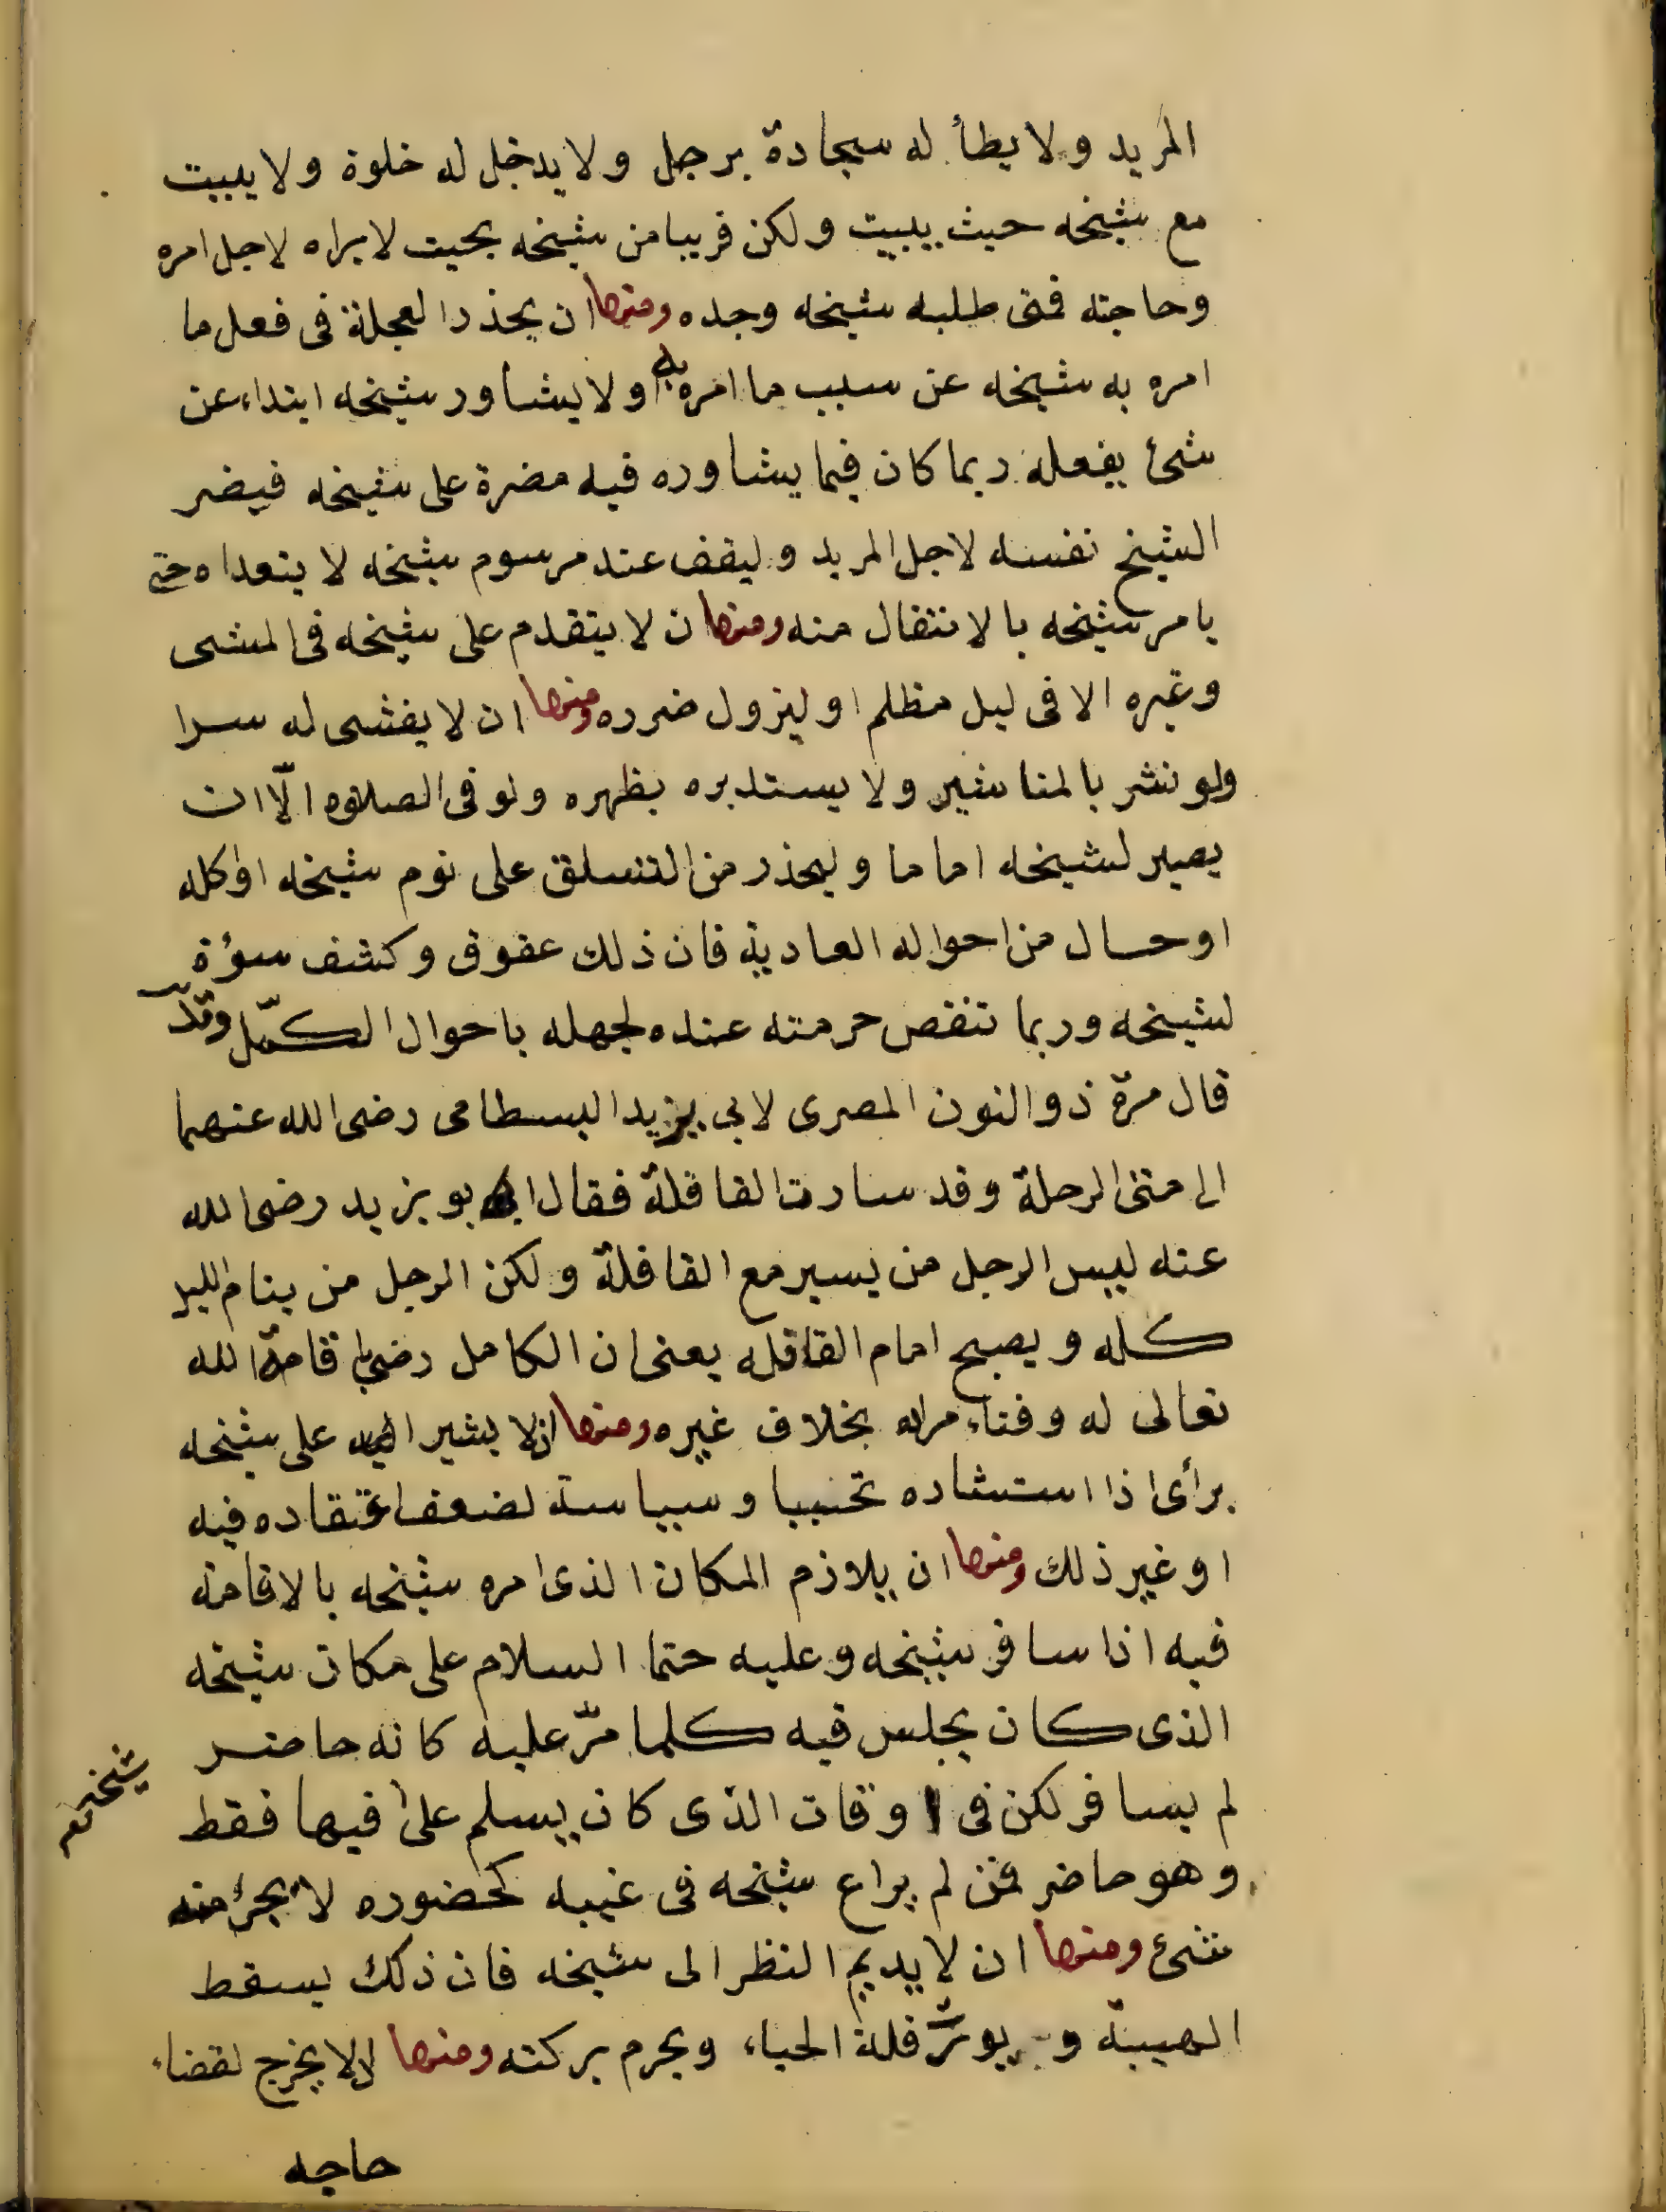 المريد ولا يطأ له سجادة برجل ولا يدخل له خلوة ولا يبيت
مع شيخه حيث يبيت ولكن قريبا من شيخه بحيت لا يراه لاجل امره
وحاجته فمتى طلبه شيخه وجده ومنها ان يحذر العجلة فى فعل ما
امره به شيخه عن سبب ما امره به ولا يشاور شيخه ابتداء عن
شئ يفعله ربما كان فيما يشاوره فيه مضرة على شيخه فيضر
الشيخ نفسه لاجل المريد وليقف عند مرسوم شيخه لا يتعداه حتى
يامر شيخه بالانتقال منه ومنها ان لا يتقدم على شيخه فى المشى
وغيره الا فى ليل مظلم او ليزول ضرره ومنها ان لا يفشى له سرا
ولو نشر بالمناشير ولا يستدبره بظهره ولو فى الصلاوه الّا ان
يصير لشيخه اماما وليحذر من التسلق على نوم شيخه او كله
او حال من احواله العادية فان ذلك عقوق وكشف سوءة
لشيخه وربما تنقص حرمته عنده لجهله باحوال الكمّل وقد
قال مرّة ذو النون المصرى لابى يزيد البسطامى رضى الله عنهما
الى متى الرحلة وقد سارت القافلة فقال ابو يزيد رضى الله
عنه ليس الرجل من يسير مع القافلة ولكن الرجل من ينام الليل
كله ويصبح امام القافله يعنى ان الكامل رضى باقامة الله
تعالى له وفناء مراده بخلاف غيره ومنها ان لا يشير على شيخه
برأى اذا استشاره تحببا وسياسة لضعف اعتقاده فيه
او غير ذلك ومنها ان يلازم المكان الذى امره شيخه بالاقامة
فيه اذا سافر شيخه وعليه حتما السلام على مكان شيخه
الذى كان يجلس فيه كلما مرّ عليه كانه حاضر
لم يسافر لكن فى اوقات الذى كان يسلم على فيها فقط
شيخه
وهو حاضر فمن لم يراع شيخه فى غيبه كحضوره لا يجئ منه
شئ ومنها ان لا يديم النظر الى شيخه فان ذلك يسقط
الهيبة ويوثر قلة الحياء ويحرم بركته ومنها ان لا يخرج لقضاء
حاجه